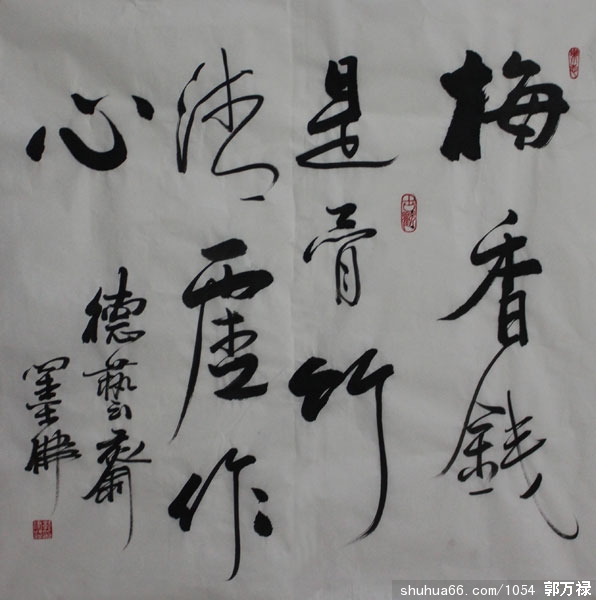 梅香鐵
是骨竹
清虚作
心
德藝齋
墨佛
shuhua66.com/1054 郭万禄